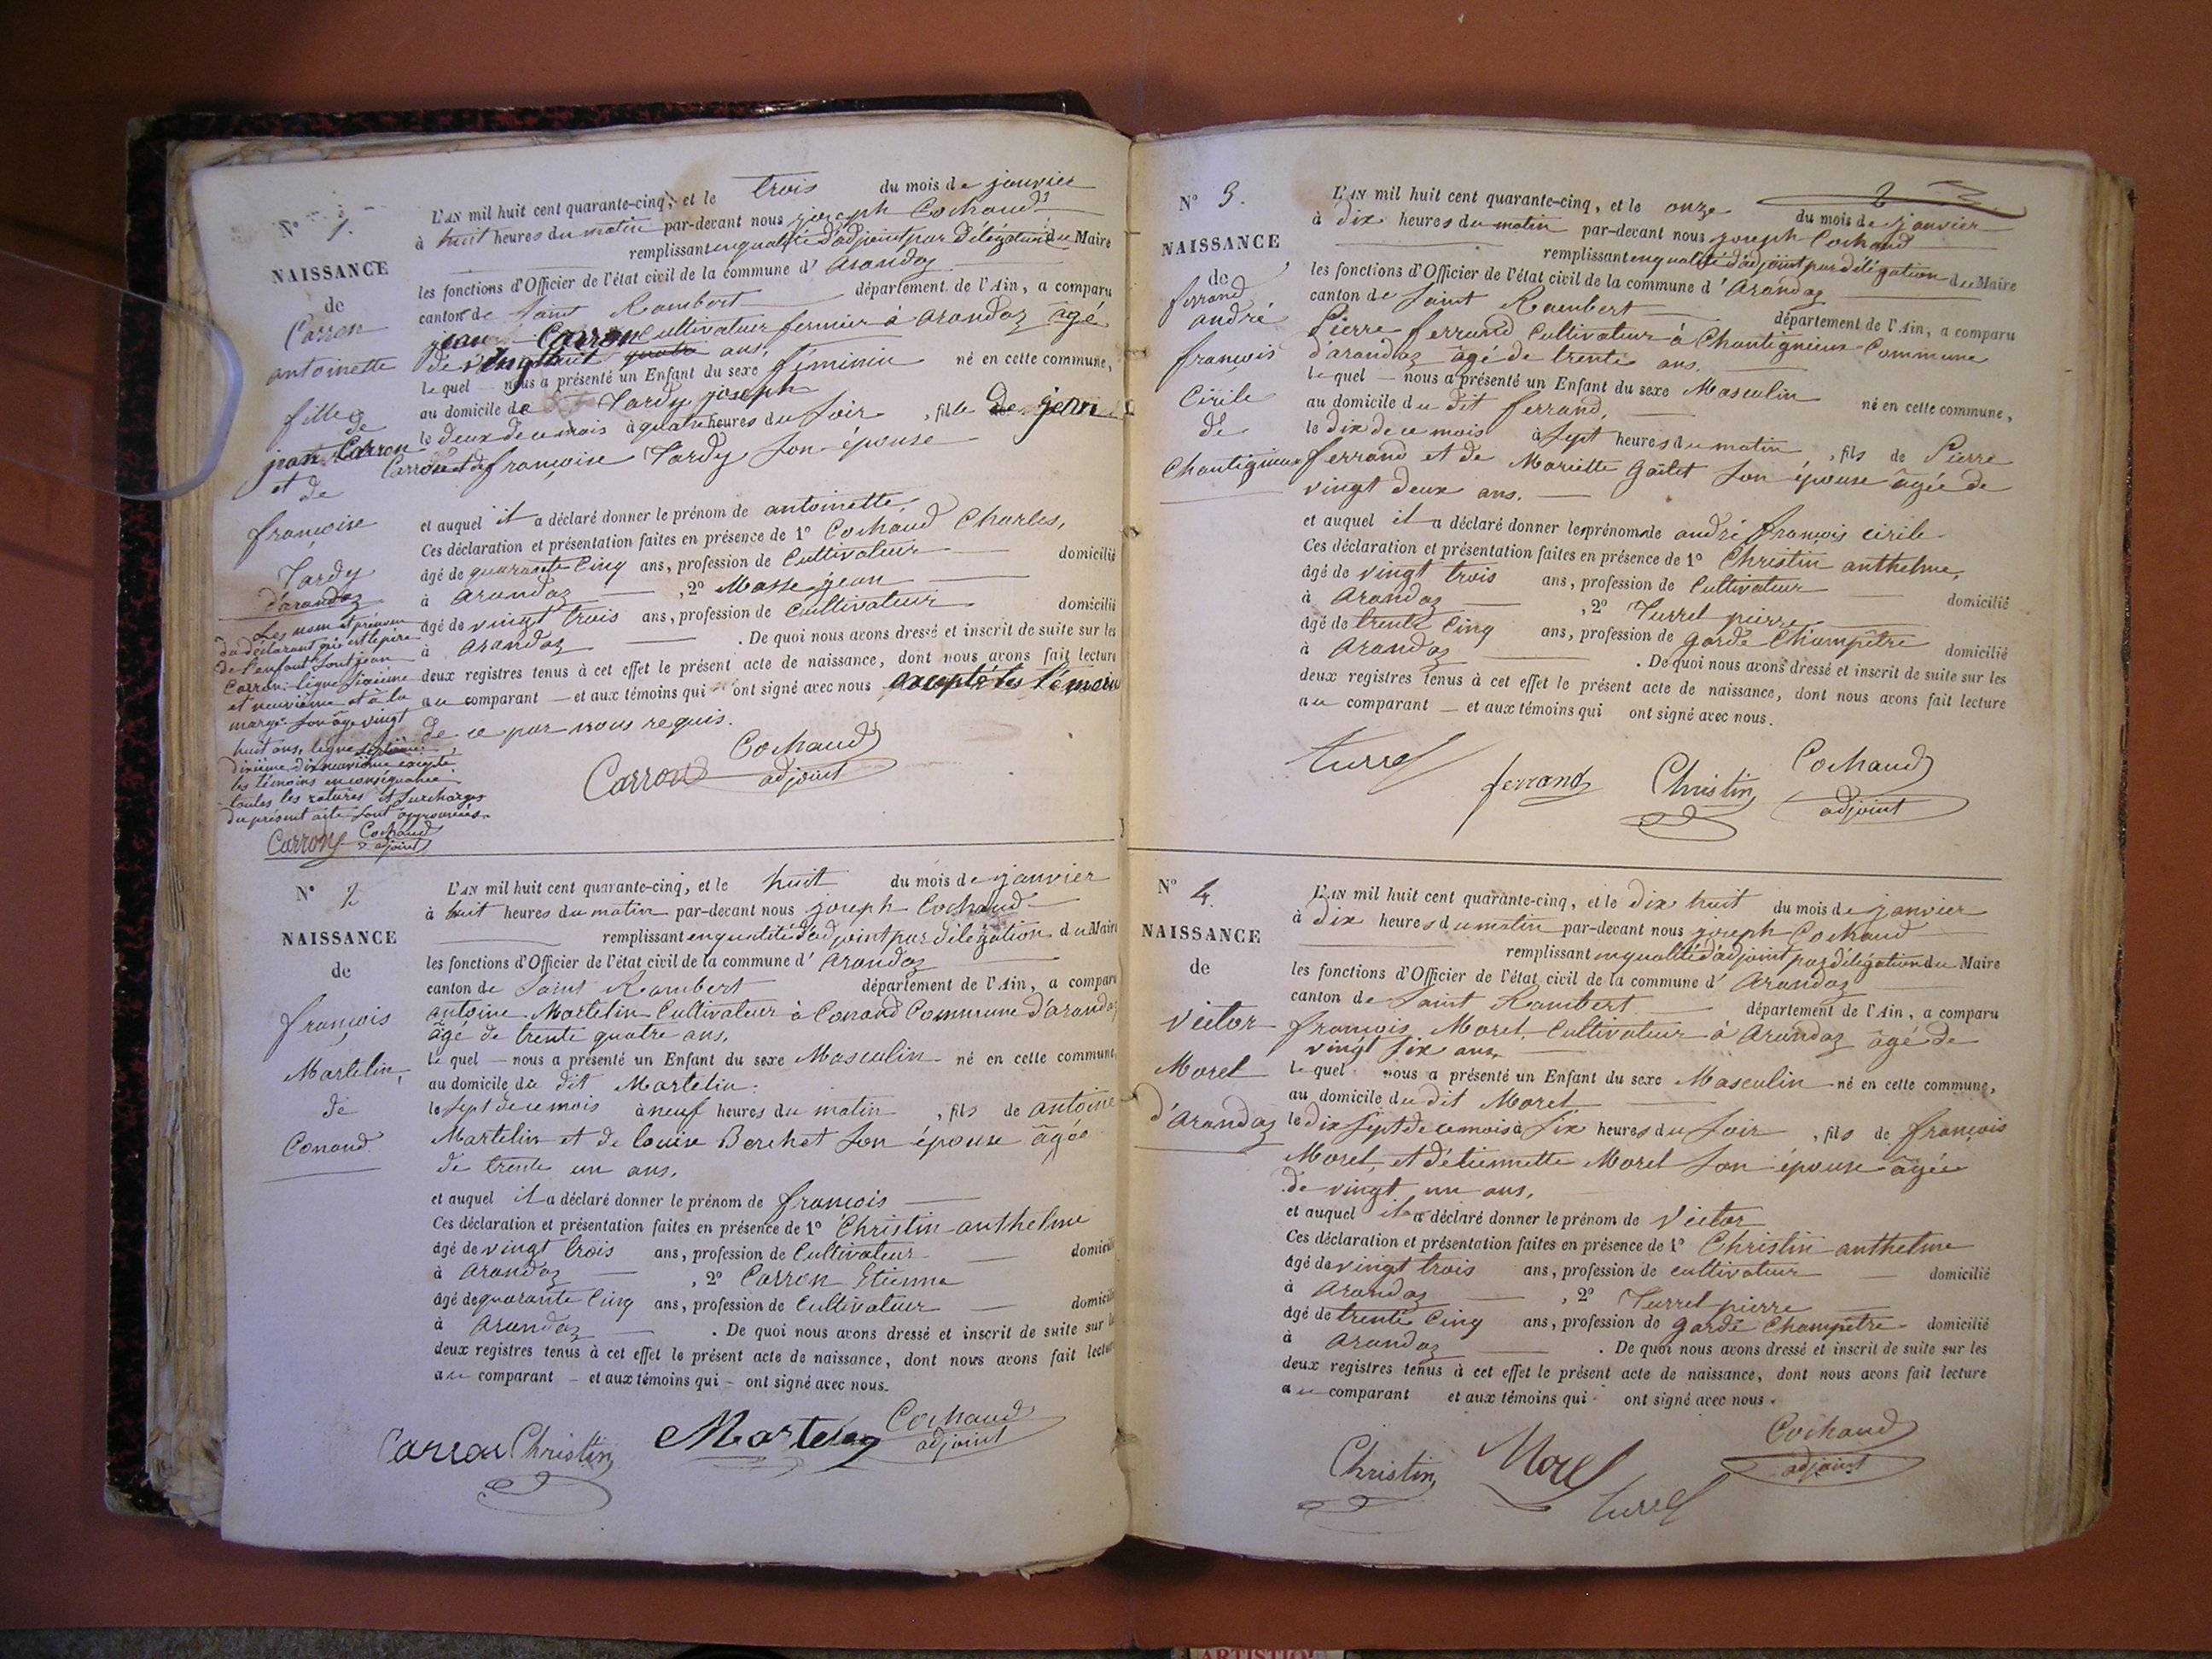 N° 1.
NAISSANCE
de
Carron
antoinette
fille
de
jean Carron
et de
françoise
Tardy
d'arandaz
Les nom et prénom
du déclarant qui est le père
de l'enfant sont jean
Carron ligne sixième
et neuvième et à la
marge son âge vingt
huit ans, ligne septième
dixième dixneuvième excepté
les témoins en conséquence
toutes les ratures et surcharges
du présent acte sont approuvées.
Carron Cochaud
adjoint
L'AN mil huit cent quarante-cinq, et le trois du mois de janvier
à huit heures du matin par-devant nous joseph Cochaud
remplissant en qualité d'adjoint par délégation du Maire
les fonctions d'Officier de l'état civil de la commune d' Arandaz
canton de Saint Rambert département de l'Ain, a comparu
jean Carron Cultivateur fermier à arandaz âgé
de vingt huit ans,
le quel nous a présenté un Enfant du sexe féminin né en cette commune,
au domicile de Tardy joseph
le deux de ce mois à quatre heures du soir , fille de jean
Carron et de françoise Tardy son épouse
et auquel il a déclaré donner le prénom de antoinette,
Ces déclaration et présentation faites en présence de 1° Cochaud Charles,
âgé de quarante cinq ans, profession de Cultivateur domicilié
à arandaz , 2° Masse jean
âgé de vingt trois ans, profession de Cultivateur domicilié
à arandaz . De quoi nous avons dressé et inscrit de suite sur les
deux registres tenus à cet effet le présent acte de naissance, dont nous avons fait lecture
au comparant et aux témoins qui ont signé avec nous excepté les témoins
de ce par nous requis.
Carron Cochaud
adjoint
N° 2
NAISSANCE
de
françois
Martelin,
de
Conand
L'AN mil huit cent quarante-cinq, et le huit du mois de janvier
à huit heures du matin par-devant nous joseph Cochaud
remplissant en qualité d'adjoint par délégation du Maire
les fonctions d'Officier de l'état civil de la commune d' Arandaz
canton de Saint Rambert département de l'Ain, a comparu
antoine Martelin Cultivateur à Conand Commune d'arandaz
âgé de trente quatre ans,
le quel nous a présenté un Enfant du sexe Masculin né en cette commune,
au domicile du dit Martelin.
le sept de ce mois à neuf heures du matin , fils de antoine
Martelin et de louise Berchet son épouse âgée
de trente un ans,
et auquel il a déclaré donner le prénom de françois
Ces déclaration et présentation faites en présence de 1° Christin anthelme
âgé de vingt trois ans, profession de Cultivateur domicilié
à Arandaz , 2° Carron Etienne
âgé de quarante Cinq ans, profession de Cultivateur domicilié
à Arandaz . De quoi nous avons dressé et inscrit de suite sur les
deux registres tenus à cet effet le présent acte de naissance, dont nous avons fait lecture
au comparant et aux témoins qui ont signé avec nous.
Carron Christin Martelin Cochaud
adjoint
2
N° 3.
NAISSANCE
de
ferrand
andré
françois
Cirile
de
Chantignieux
L'AN mil huit cent quarante-cinq, et le onze du mois de janvier
à dix heures du matin par-devant nous joseph Cochaud
remplissant en qualité d'adjoint par délégation du Maire
les fonctions d'Officier de l'état civil de la commune d' Arandaz
canton de Saint Rambert département de l'Ain, a comparu
Pierre ferrand Cultivateur à Chantignieux Commune
d'arandaz âgé de trente ans,
le quel nous a présenté un Enfant du sexe Masculin né en cette commune,
au domicile du dit ferrand,
le dix de ce mois à sept heures du matin , fils de Pierre
ferrand et de Mariette Goitet son épouse âgée de
vingt deux ans.
et auquel il a déclaré donner les prénoms de andré françois cirile
Ces déclaration et présentation faites en présence de 1° Christin anthelme,
âgé de vingt trois ans, profession de Cultivateur domicilié
à Arandaz , 2° Turrel pierre
âgé de trente Cinq ans, profession de garde Champêtre domicilié
à Arandaz . De quoi nous avons dressé et inscrit de suite sur les
deux registres tenus à cet effet le présent acte de naissance, dont nous avons fait lecture
au comparant et aux témoins qui ont signé avec nous.
turrel ferrand Christin Cochaud
adjoint
N° 4.
NAISSANCE
de
victor
Morel
d'Arandaz
L'AN mil huit cent quarante-cinq, et le dix huit du mois de janvier
à dix heures du matin par-devant nous joseph Cochaud
remplissant en qualité d'adjoint par délégation du Maire
les fonctions d'Officier de l'état civil de la commune d' Arandaz
canton de Saint Rambert département de l'Ain, a comparu
françois Morel Cultivateur à Arandaz âgé de
vingt six ans,
le quel nous a présenté un Enfant du sexe Masculin né en cette commune,
au domicile du dit Morel
le dix sept de ce mois à six heures du soir , fils de françois
Morel, et d'étiennette Morel son épouse âgée
de vingt un ans,
et auquel il a déclaré donner le prénom de Victor
Ces déclaration et présentation faites en présence de 1° Christin anthelme
âgé de vingt trois ans, profession de cultivateur domicilié
à Arandaz , 2° Turrel pierre
âgé de trente Cinq ans, profession de garde Champêtre domicilié
à Arandaz . De quoi nous avons dressé et inscrit de suite sur les
deux registres tenus à cet effet le présent acte de naissance, dont nous avons fait lecture
au comparant et aux témoins qui ont signé avec nous.
Christin Morel turrel Cochaud
adjoint